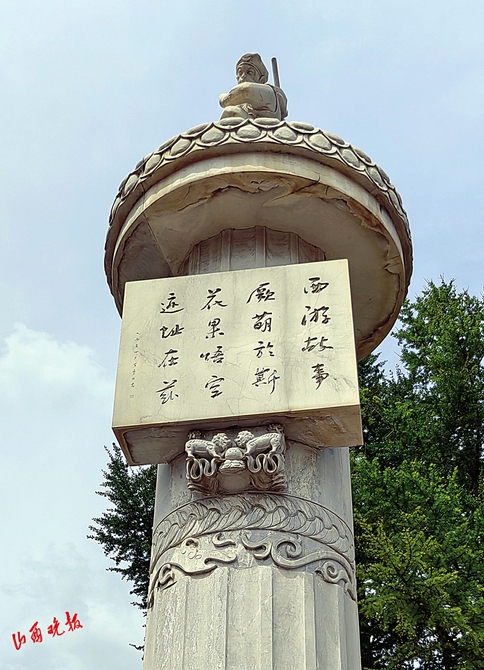 西游故事
厥萌於斯
花果悟空
迹址在兹
山西晚报